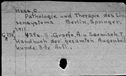 Hess, C.
Pathologie und Therapie des Lin-
sensystems. Berlin, Springer,
1911.
455p. (Graefe, A. & Saemisch, T.
Handbuch der gesamten Augenheil-
kunde. 3. Auf.)